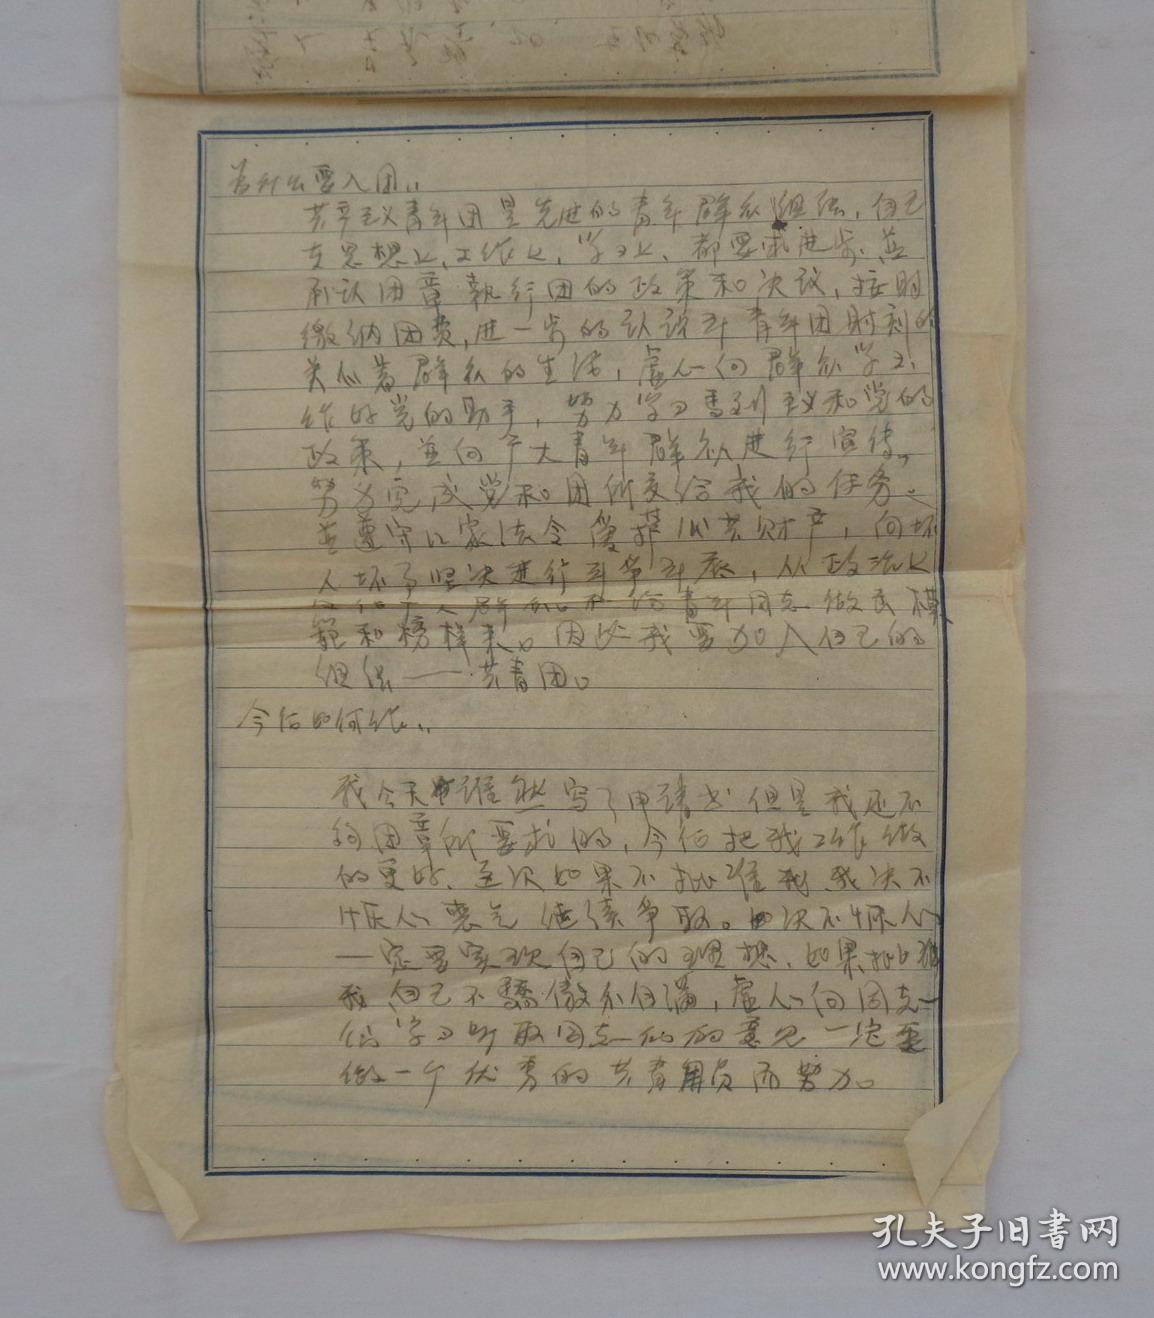 为什么要入团：
共产主义青年团是先进的青年群众组织，自己
在思想上、工作上、学习上、都要求进步並
承认团章執行团的政策和决议，按时
缴纳团费，进一步的认识到青年团时刻的
关心着群众的生活，虚心向群众学习，
作好党的助手，努力学习馬列主义和党的
政策，並向广大青年群众进行宣传，
努力完成党和团所交给我的任务。
並遵守国家法令爱护公共财产，向坏
人坏事坚决进行斗争到底，从政治上
群众和给青年同志做出模
範和榜样来。因此我要加入自己的
组织——共青团。
今后如何作：
我今天虽然写了申请书但是我还不
够团章所要求的，今后把我工作做
的更好、这次如果不批准我、我决不
灰心丧气继续争取。决不灰心
一定要实现自己的理想、如果批准
我自己不驕傲不自满，虚心向同志
们学习听取同志们的意见一定要
做一个优秀的共青团员而努力。
孔夫子旧書网
www.kongfz.com